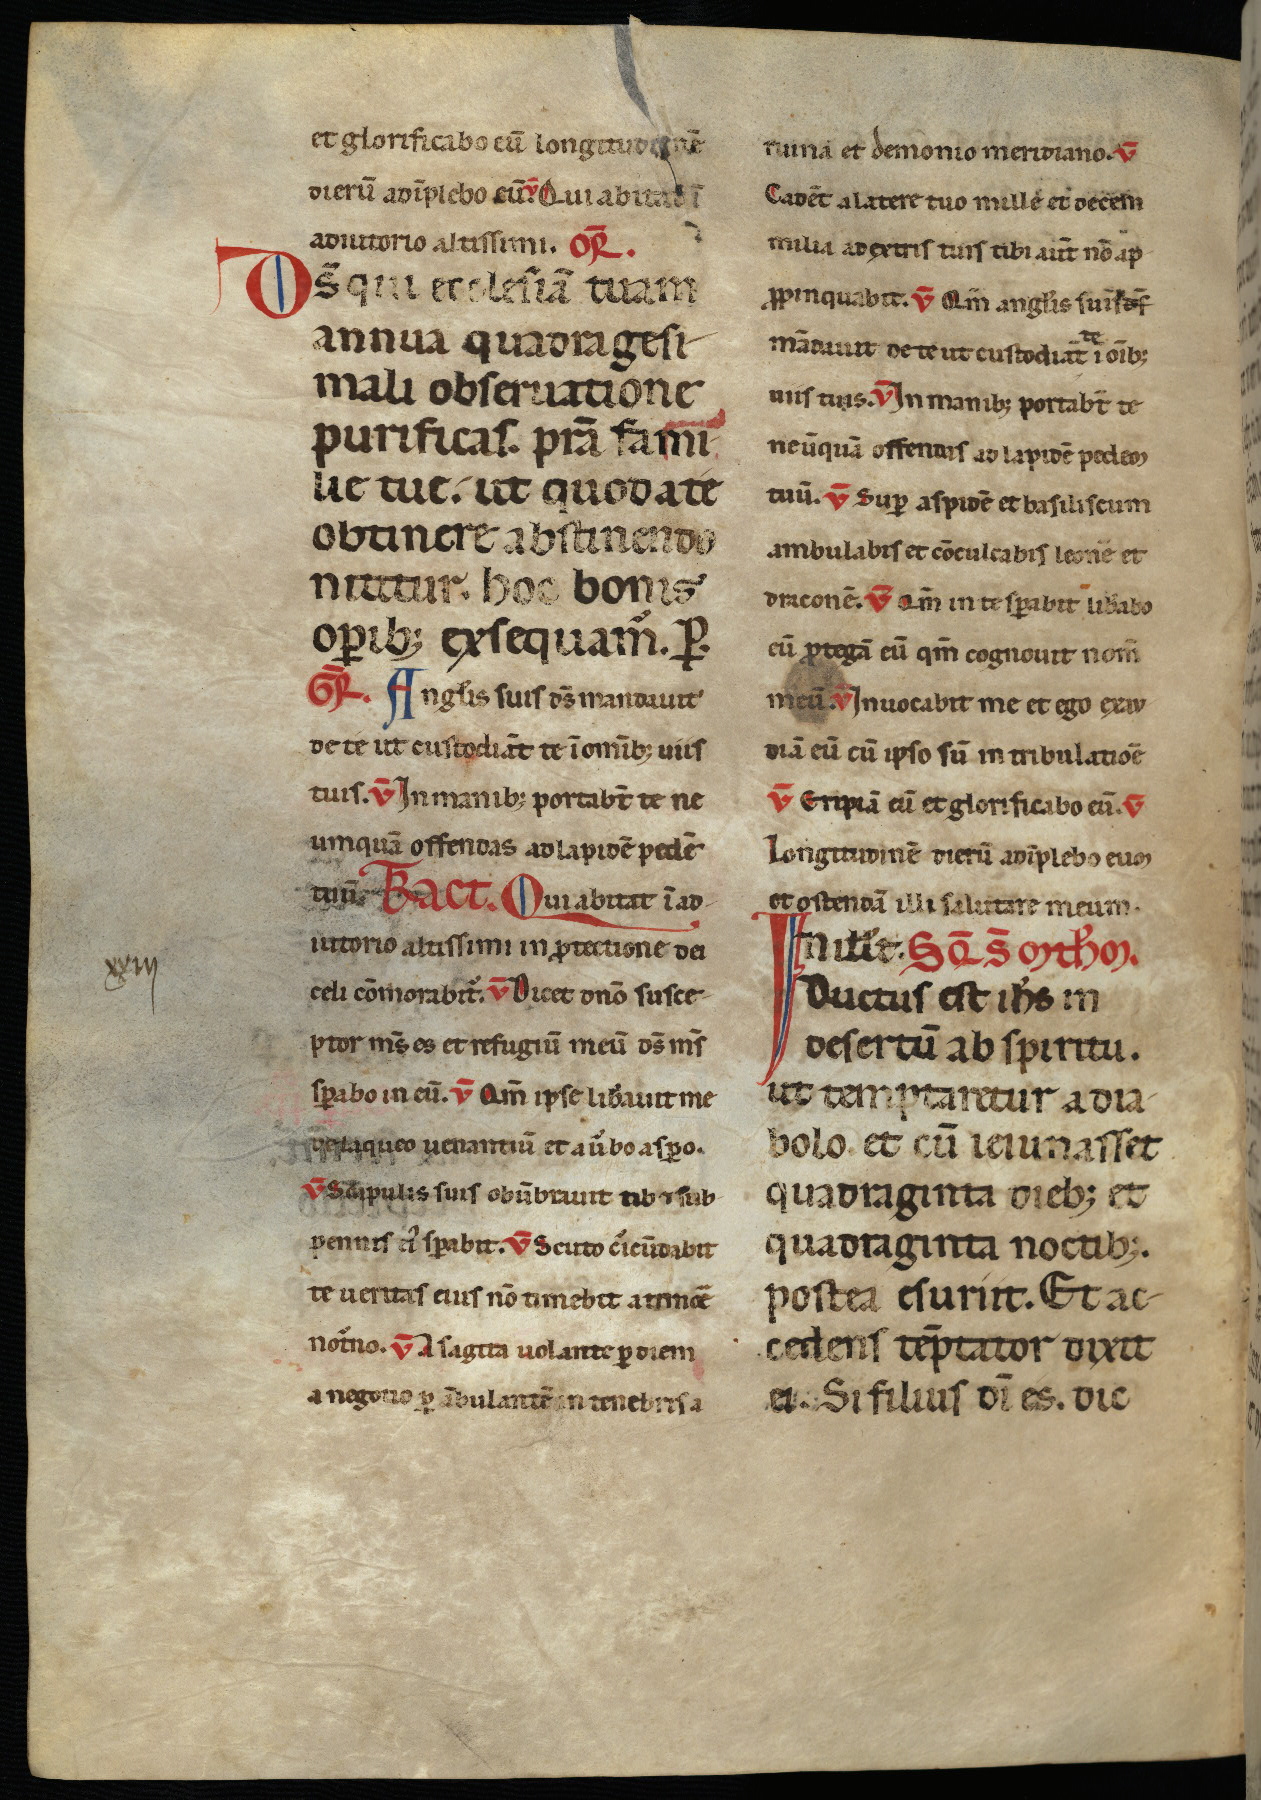 et glorificabo eū longitudinē
dierū adīplebo eū. v̄ Qui abitad ī
adiutorio altissimi. OR̄.
Ds̄ qui ecclesiā tuam
annua quadragesi-
mali obseruatione
purificas. prā fami-
lie tue. ut quod a te
obtinere abstinendo
nititur. hoc bonis
opib; exsequam̄. P.
GR̄. Anglis suis ds̄ mandauit
de te ut custodiāt te ī omīb; uiis
tuis. v̄ In manib; portabt̄ te ne
umquā offendas ad lapidē pedē
tuū. Tract. Qui abitat ī ad-
iutorio altissimi in protectione dei
celi cōmorabit̄. v̄ Dicet dn̄o susce-
ptor ms̄ es et refugiū meū ds̄ ms̄
spabo in eū. v̄ Qm̄ ipse libauit me
de laqueo uenantiū et a ūbo aspo.
v̄ Scapulis suis obūbrauit tibi et sub
pennis ei spabit. v̄ Scuto cīcūdabit
te ueritas eius nō timebit a timoē
notn̄o. v̄ A sagita uolante p diem
a negotio p ābulantē in tenebris a
ruinā et demonio meridiano. v̄
Cadēt a latere tuo mille et decem
milia a dextris tuis tibi aūt nō ap-
propinquabit. v̄ Qm̄ anglis suis ds̄
mādauit de te ut custodiāt te ī oīb;
uiis tuis. v̄ In manib; portabt̄ te
ne ūquā offendas ad lapidē pedem
tuū. v̄ Sup aspidē et basiliscum
ambulabis et cōculcabis leonē et
draconē. v̄ Qm̄ in te spabit libabo
eū protegā eū qm̄ cognouit nom̄
meū. v̄ Inuocabit me et ego exau
diā eū cū ipso sū in tribulatioē
v̄ Eripiā eū et glorificabo eū. v̄
Longitudinē dierū adīplebo eum
et ostendā illi salutare meum.
In illt̄. SQ̄ S̄ mth̄m.
Ductus est ihs̄ in
desertū ab spiritu.
ut temptaretur a dia-
bolo. et cū ieiunasset
quadraginta dieb; et
quadraginta noctib;.
postea esuriit. Et ac-
cedens tēptator dixit
ei. Si filius dī es. dic
xxiii